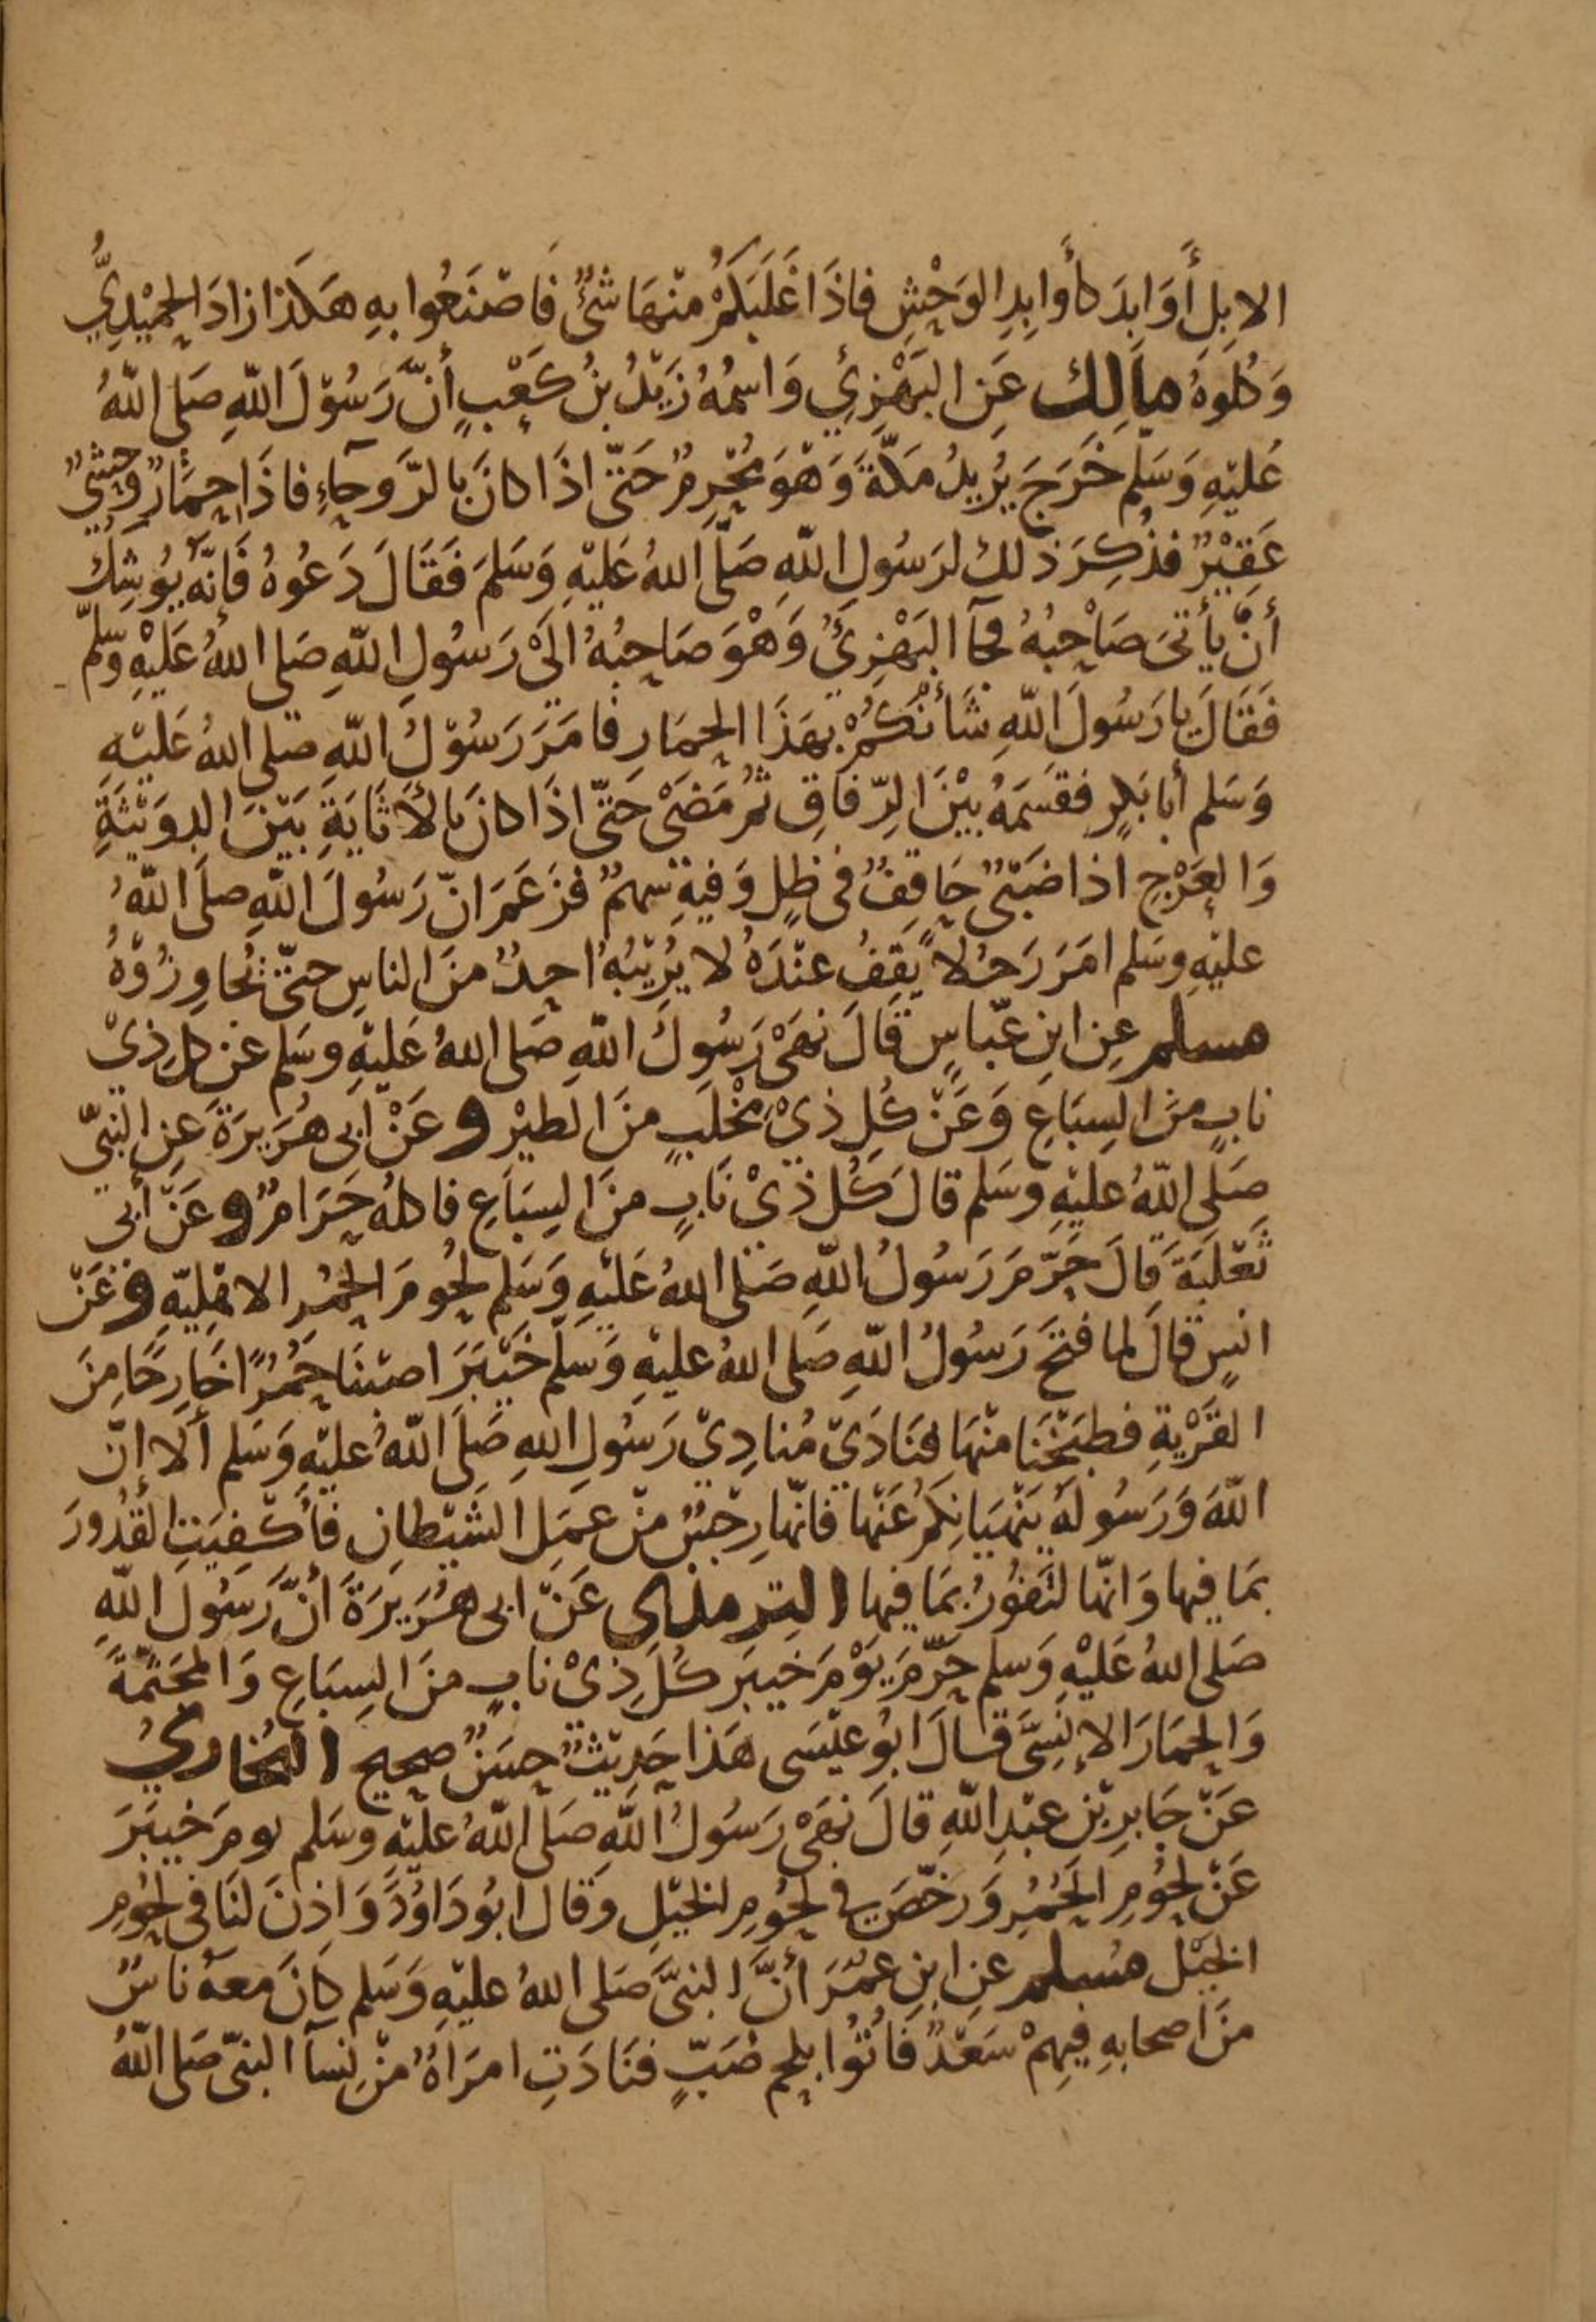 الابِلِ أَوَابِدَ كأَوابِدِ الوَحْشِ فاذَا غَلَبَكُمْ منْهَا شئٌ فَاصْنَعُوا بهِ هَكَذا زادَ الحُمَيْدِيُّ
وَكلوهُ مالك عَنِ البَهْزِيِّ وَاسمُهُ زَيْدُ بنُ كَعْبٍ أنَّ رَسُوْلَ اللّهِ صَلى اللّهُ
عَليْهِ وَسَلم خَرَجَ يُرِيدُ مَكّةَ وَهْوَ مُحْرِمٌ حَتّى اذَا كانَ بالرَّوحآءِ فاذَا حِمَارٌ وَحشِيٌّ
عَقِيْرٌ فذُكِرَ ذلك لرَسُولِ اللّهِ صَلّى اللهُ عَليْهِ وَسَلمَ فَقَالَ دَعُوهُ فَإنهُ يُوشِكُ
أنْ يأتىَ صَاحِبُهُ فجآ البَهْزِيُّ وَهْوَ صَاحِبُهُ الَى رَسُولِ اللّهِ صَلى اللهُ عَلَيْهِ وسلم
فَقَالَ يا رَسُولَ اللّهِ شَأنُكُمْ بهَذَا الحِمَارِ فامَرَ رَسُوْلُ اللّهِ صلى اللهُ عَلَيْهِ
وَسَلم أبا بَكرٍ فقسَمَهُ بيْنَ الرّفاقِ ثمَّ مَضَى حَتّى اذَا كانَ بالأثَايَةِ بَيْنَ الروَيْثَةِ
وَالعَرْجِ اذا ضَبْىٌ حَاقِفٌ فى ظِلٍ وَفيهِ سهمٌ فزَعَمَ انّ رَسُولَ اللّهِ صلَى اللّهُ
عليْهِ وسَلم امَرَ رَجُلاً يَقِفُ عنْدَهُ لا يُرِيْبُهُ احدٌ منَ الناسِ حتّى تُجاوِزُوْهُ
مسلم عنِ ابنِ عبّاسٍ قَالَ نهَى رَسُولُ اللّهِ صَلى اللهُ عَليْهِ وسَلم عَن كلِ ذِىْ
نابٍ منَ السِبَاعِ وَعَنْ كُلِ ذِيْ مِخْلَبٍ منَ الطيْرِ و عَنْ أبى هُرَيرَةَ عنِ النبىّ
صَلى اللّهُ عليْهِ وسَلم قالَ كُل ذِيْ نَابٍ منَ السِبَاعِ فاكلهُ حَرَامٌ و عَنْ أبى
ثَعْلَبَةَ قَالَ حَرّمَ رَسُولُ اللّهِ صَلى اللهُ عَليْهِ وَسَلم لحُومَ الحُمُرِ الاهْلِيّهِ و عَنْ
انسٍ قالَ لما فتحَ رَسُولُ اللّهِ صَلى اللهُ عليْهِ وَسَلم خَيْبَرَ اصبْنَا حُمُرًا خَارِجًا مِنَ
القَرْيةِ فطبَخْنَا منْهَا فنَادَىْ مُنادِيْ رَسُولِ اللهِ صَلى اللّهُ عليْهِ وَسَلم ألا إنّ
اللّهَ وَرَسُولهُ ينْهيَانِكمْ عَنْها فانّها رِجْسٌ منْ عمَلِ الشيْطانِ فأكفِيَتِ القُدُورَ
بمَا فيها وَانّها لتَفُورُ بمَا فيها الترمذى عَنْ ابى هُرَيرَةَ أنَّ رَسُولَ اللّهِ
صَلى اللهُ عَليْهِ وَسلم حَرّمَ يوْمَ خيبَرَ كُلَ ذِىْ نابٍ منَ السِبَاعِ وَالمجَثمةَ
وَالحِمَارَ الإنسِىَّ قالَ ابُو عيْسَى هَذا حَدِيْثٌ حسَنٌ صحيح البخاريُ
عَنْ جَابرِ بْنِ عبْدِ اللّهِ قالَ نهَىْ رَسُولُ اللّهِ صَلى اللّهُ عليْهِ وسَلم يومَ خيبَرَ
عَنْ لحُومِ الحُمُرِ وَرخّصَ في لحُومِ الخيْلِ وَقالَ ابُو دَاوُدَ وَاذِنَ لنَا فى لحُومِ
الخيْل مُسلم عنِ ابنِ عمَرَ أنَّ النبىَّ صَلى اللهُ عليْهِ وَسَلم كانَ معهُ ناسٌ
منَ اصحابهِ فيهِمْ سَعْدٌ فَاُتُوا بلحمِ ضبٍّ فنَادَتِ امرَاةٌ منْ نسآ النبىّ صَلى اللّهُ